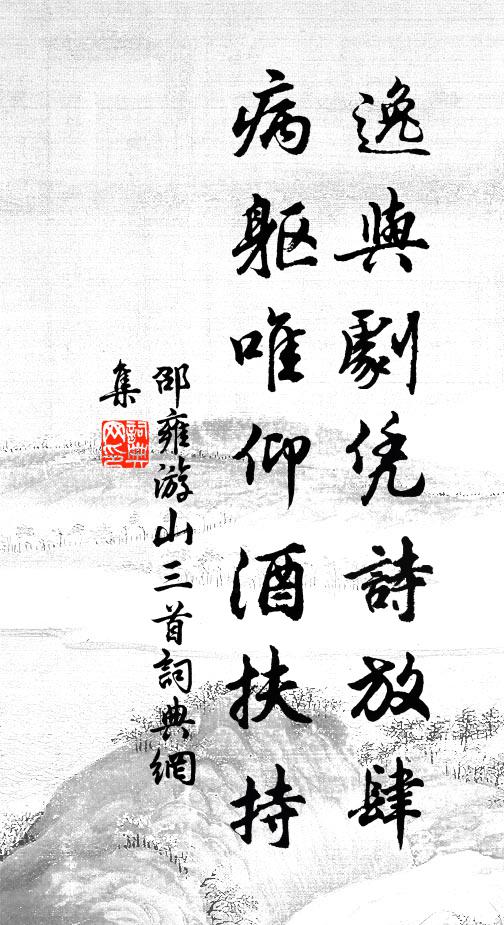 逸興劇凭詩放肆
病軀唯仰酒扶持
邵雍游山三首詞典網
集
詞典网印